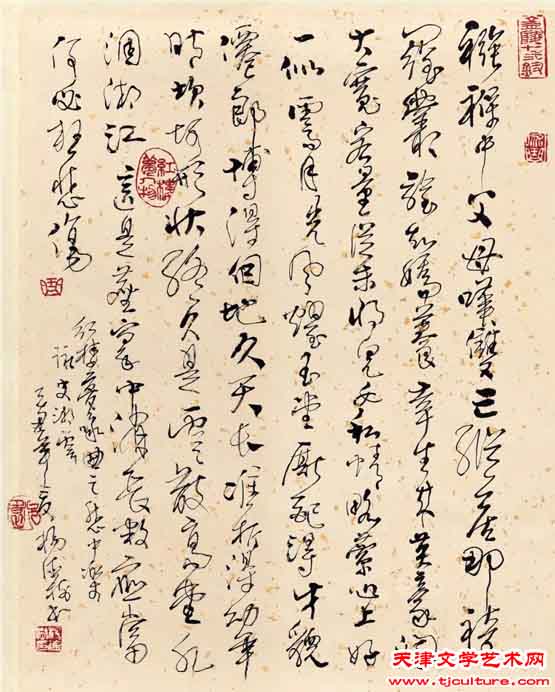 襁褓中父母嘆雙亡縱居那綺
羅叢誰知嬌養幸生來英豪闊
大寬宏量從未將兒女私情略縈心上好
一似霽月光風耀玉堂廝配得才貌
仙郎博得個地久天長準折得幼年
時坎坷形狀終久是雲散高唐水
涸湘江這是塵寰中消長數應當
何必枉悲傷
紅樓夢歌曲之悲中樂
詠史湘雲
紅樓夢人物
天津文学艺术网
www.tjculture.com